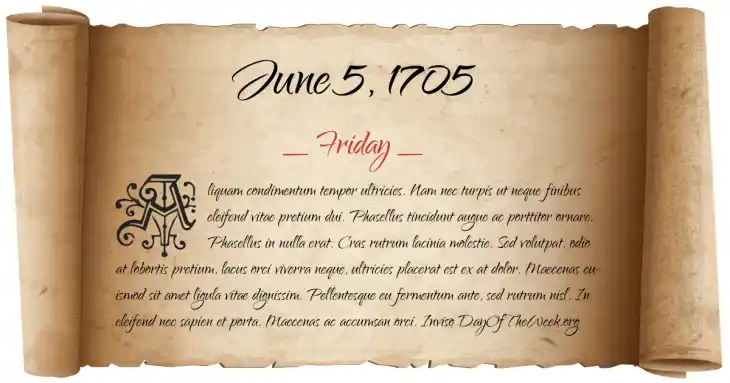 June 5, 1705
_ Friday _
Aliquam condimentum tempor ultricies. Nam nec turpis ut neque finibus
eleifend vitae pretium dui. Phasellus tincidunt augue ac porttitor ornare.
Phasellus in nulla erat. Cras rutrum lacinia molestie. Sed volutpat, odio
at lobortis pretium, lacus orci viverra neque, ultricies placerat est ex at dolor. Maecenas eu-
ismod sit amet ligula vitae dignissim. Pellentesque eu fermentum ante, sed rutrum nisl. In
eleifend nec sapien et porta. Maecenas ac accumsan orci. Inviso DayOfTheWeek.org